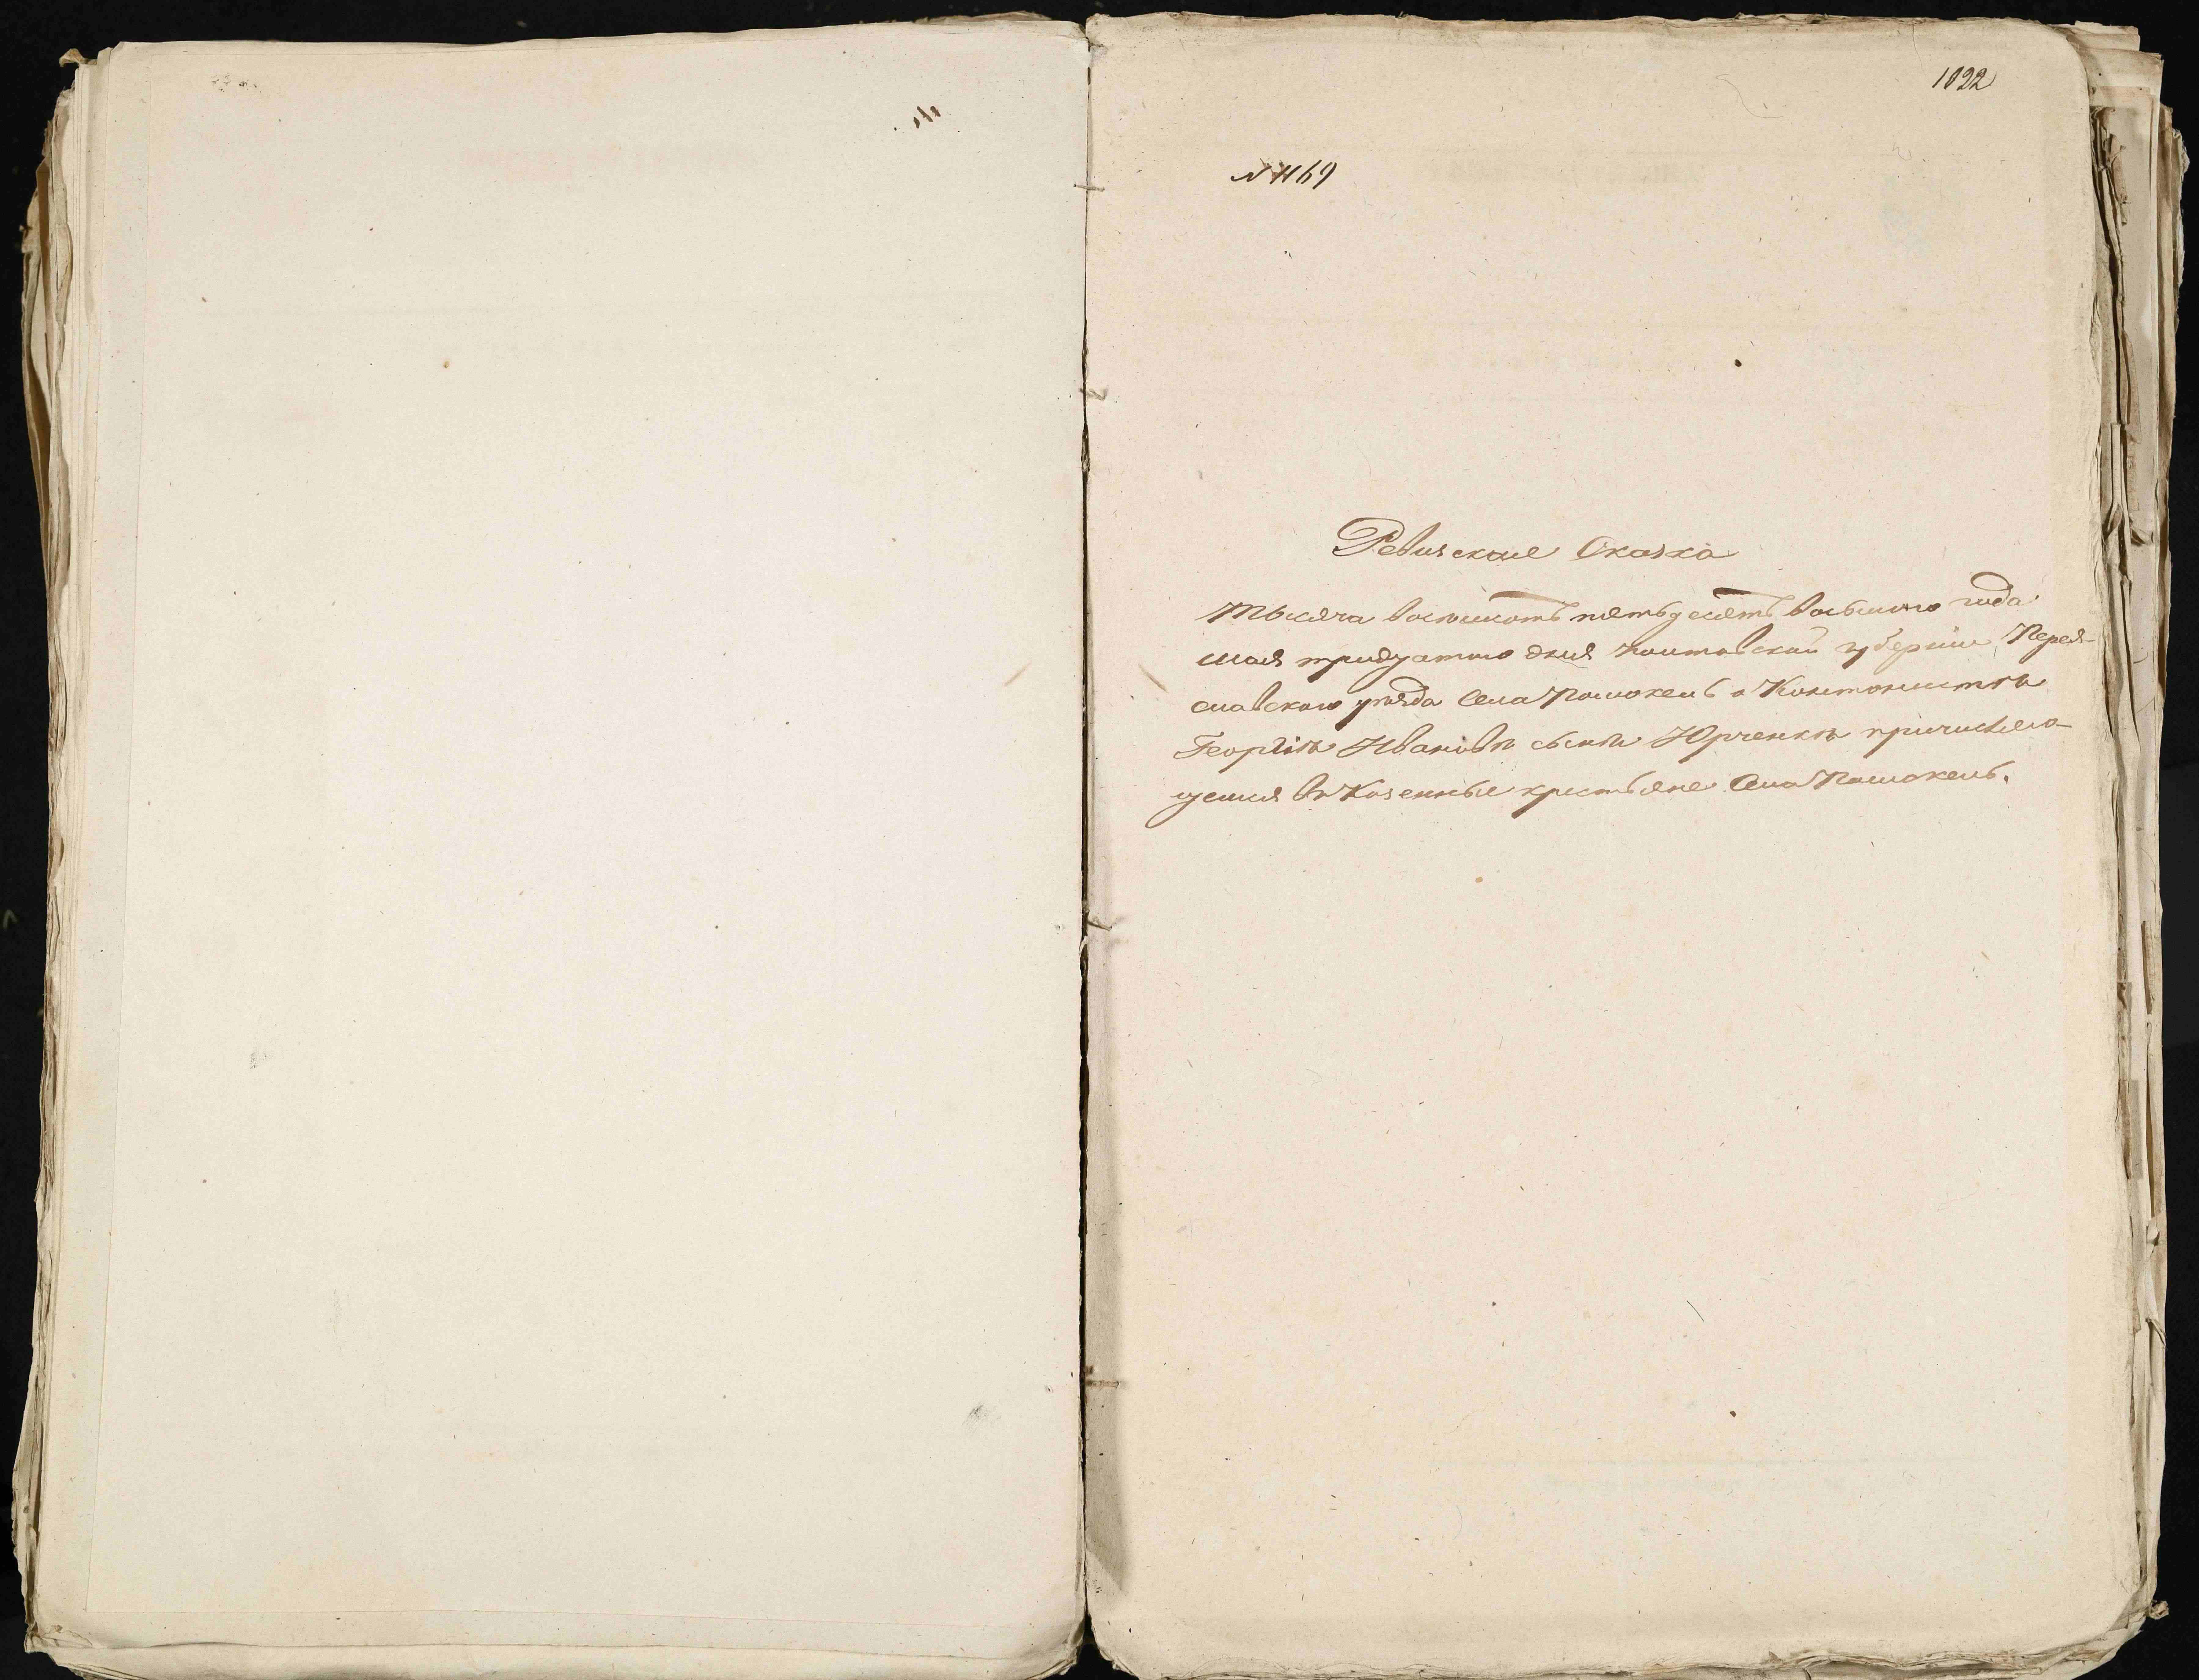 1092
№ 1169
Ревизская Сказка
Тысяча восемсотъ пятьдесятъ восьмого года
мая тридцатого дня Полтавской губерніи, Перея-
славского уѣзда Села Помокель о Кантонистѣ
Георгіѣ Ивановѣ сынѣ Юрченкѣ причисляю-
щемся въ Казенные крестьяне Села Помокель.